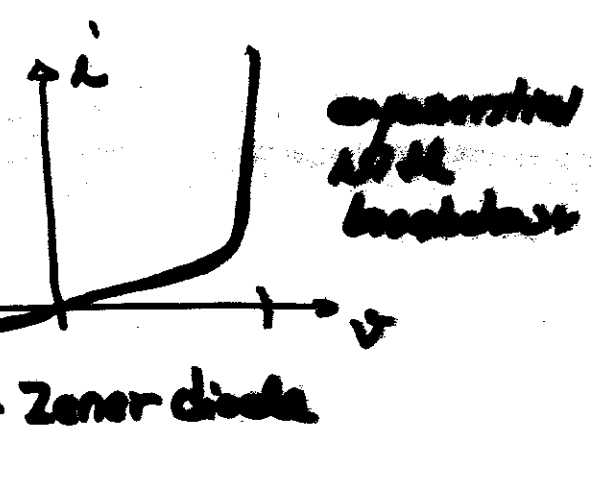 i
exponential
with
breakdown
v
Zener diode